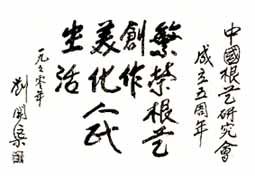 中國根艺研究會
成立五周年
繁荣根艺
創作
美化人民
生活
一九九零年
刘開渠